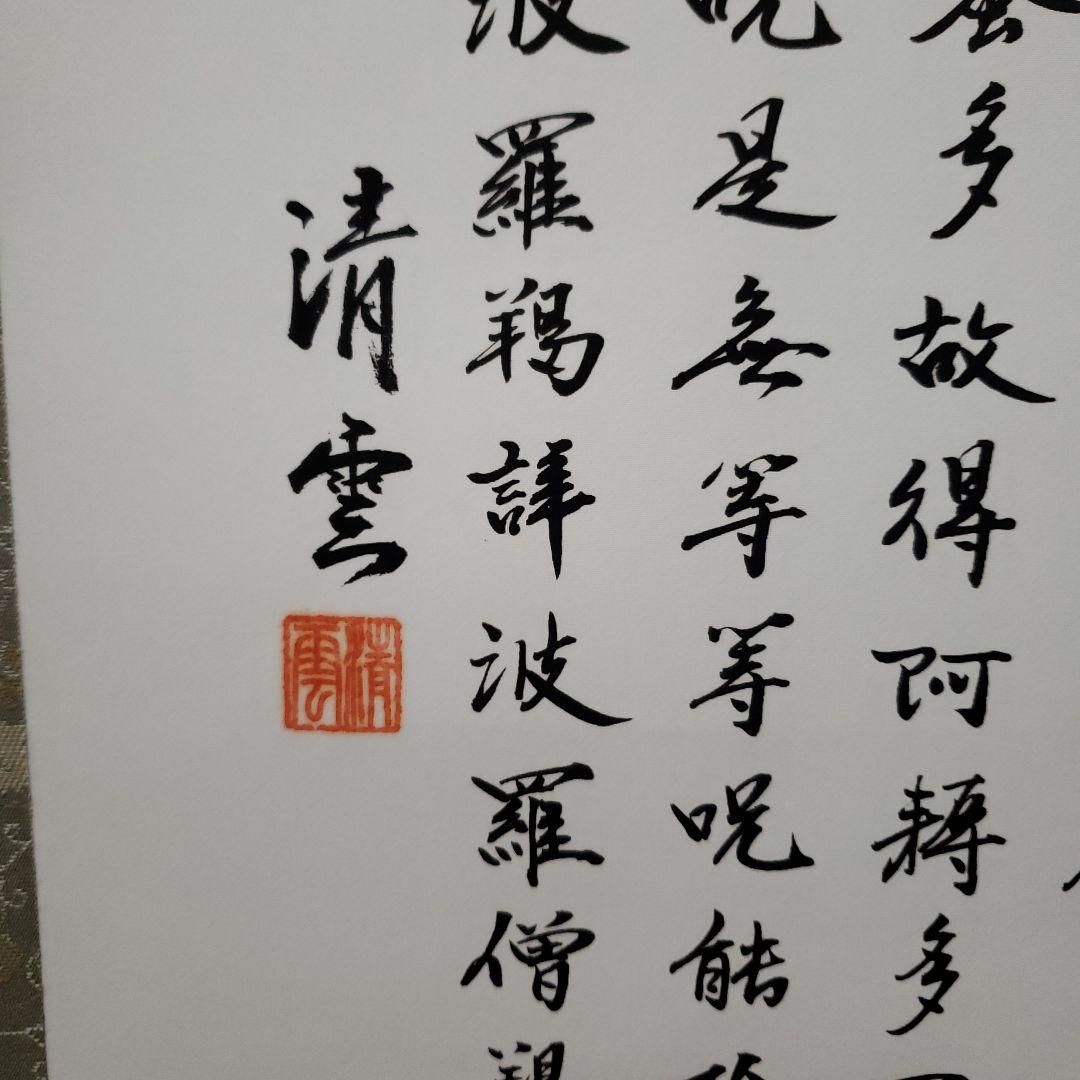 蜜多故得阿耨多
呪是無等等呪能除
波羅羯諦波羅僧羯
清雲
清雲